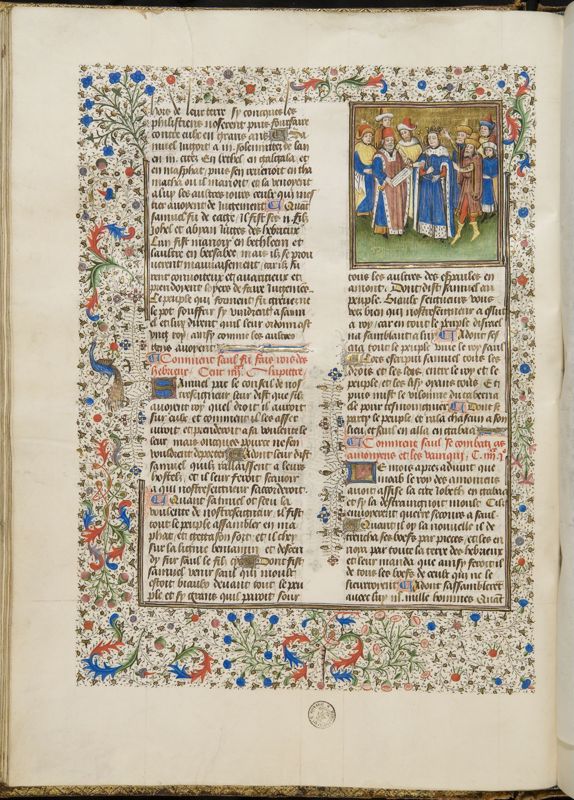 hors de leur terre sy conques les
philistiens noserent puis fourfaire
contre eulx en grans ans Sa
muel jugoit a iii. solemnitez de lan
en iii. citez En bethel en galgala et
en masphat puis sen revenoit en tha
matha ou il manoit et la venoyent
a luy les aultres toutes ceulx qui mes
tier avoyent de jugement Quant
samuel fu de eatge il fist ses ii. filz
johel et abyan juges des hebrieux
Lun fist manoir en bethleem et
laultre en bersabee mais ilz se prou
verent mauvaisement car ilz fu
rent convoiteux et avaricieux et
prendoyent loyers de faulx jugemens
Le peuple qui forment fu greve ne
le pot souffrir sy vindrent a samu
el et luy dirent quil leur ordonnast
ung roy ainsy comme les aultres
terre avoyent
Comment saul fu fais roys des
hebrieux Cent chapitre
Samuel par le conseil de nos
treseigneur leur dist que silz
avoyent roy quel droit il auroit
sur eulx et comment il les asser
viroit et prenderoit a sa voulente le
leur mais oncques pource ne sen
vouldrent departer Adont leur dist
samuel quilz rallaissent a leurs
hostelz et il leur feroit scavoir
a qui nostreseigneur sacorderoit
Quant samuel ot sceu la
voulente de nostreseigneur il fist
tout le peuple assambler en ma
sphat et getta son sort et il chey
sur la lignie benjamin et descen
dy sur saul le filz cys Dont fist
samuel venir saul qui moult
estoit biaulx devant tout le peu
ple et sy grans quil paroit sour
tous les aultres des espaules en
amont Dont dist samuel au
peuple Biaulx seigneurs vous
vees bien que nostreseigneur a esleut
a roy car en tout le peuple disrael
na samblant a luy Adont ses
cria tout le peuple vive le roy saul
Lors escripvi samuel toute les
drois et les loys entre le roy et le
peuple et les lisy oyans tous Et
puis mist le volume ou taberna
cle pour tesmoingnier Dont se
party le peuple et rala chascun a son
lieu et saul en ala en gabaa
Comment saul se combaty as
amonyens et les vainqui
Le mois apres advint que
naab le roy des amoniens
avoit assise la cite jabeth en galaad
et sy la destraingnoit moult Cilz
envoyerent querre secours a saul
Quant il oy la nouvelle il de
trencha ses boefs par pieces et les en
voya par toute la terre des hebrieux
et leur manda que ainsy feroit il
de tous les boefs de ceulx qui ne le
sieuroyent Adont sassamblerent
avec luy iii. mille hommes Quant